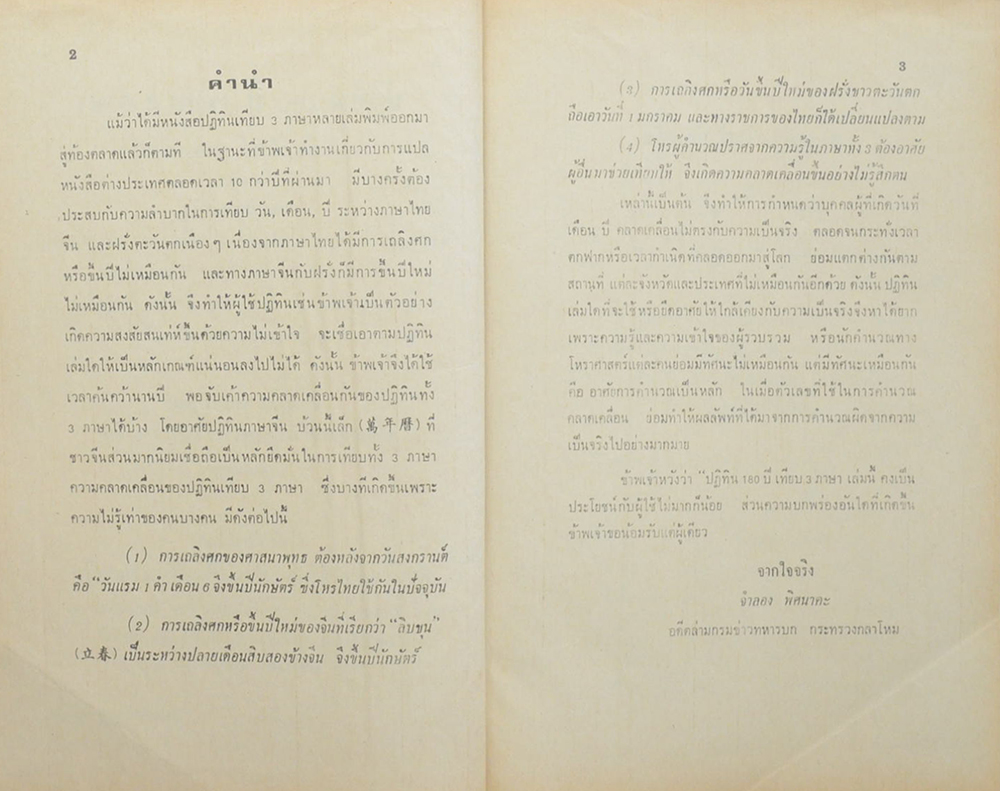 2
คำนำ
แม้ว่าได้มีหนังสือปฏิทินเทียบ 3 ภาษาหลายเล่มพิมพ์ออกมา
สู่ท้องตลาดแล้วก็ตามที ในฐานะที่ข้าพเจ้าทำงานเกี่ยวกับการแปล
หนังสือต่างประเทศตลอดเวลา 10 กว่าปีที่ผ่านมา มีบางครั้งต้อง
ประสบกับความลำบากในการเทียบ วัน, เดือน, ปี ระหว่างภาษาไทย
จีน และฝรั่งตะวันตกเนืองๆ เนื่องจากภาษาไทยได้มีการเถลิงศก
หรือขึ้นปีไม่เหมือนกัน และทางภาษาจีนกับฝรั่งก็มีการขึ้นปีใหม่
ไม่เหมือนกัน ดังนั้น จึงทำให้ผู้ใช้ปฏิทินเช่นข้าพเจ้าเป็นตัวอย่าง
เกิดความสงสัยสนเท่ห์ขึ้นด้วยความไม่เข้าใจ จะเชื่อเอาตามปฏิทิน
เล่มใดให้เป็นหลักเกณฑ์แน่นอนลงไปไม่ได้ ดังนั้น ข้าพเจ้าจึงได้ใช้
เวลาค้นคว้านานปี พอจับเค้าความคลาดเคลื่อนกันของปฏิทินทั้ง
3 ภาษาได้บ้าง โดยอาศัยปฏิทินภาษาจีน บ้วนนี้เล็ก (萬年曆) ที่
ชาวจีนส่วนมากนิยมเชื่อถือเป็นหลักยึดมั่นในการเทียบทั้ง 3 ภาษา
ความคลาดเคลื่อนของปฏิทินเทียบ 3 ภาษา ซึ่งบางทีเกิดขึ้นเพราะ
ความไม่รู้เท่าของคนบางคน มีดังต่อไปนี้
(1) การเถลิงศกของศาสนาพุทธ ต้องหลังจากวันสงกรานต์
คือ "วันแรม 1 ค่ำ เดือน 6 จึงขึ้นปีนักษัตร์ ซึ่งโหรไทยใช้กันในปัจจุบัน
(2) การเถลิงศกหรือขึ้นปีใหม่ของจีนที่เรียกว่า "ลิบชุน"
(立春) เป็นระหว่างปลายเดือนสิบสองข้างจีน จึงขึ้นปีนักษัตร์
3
(3) การเถลิงศกหรือวันขึ้นปีใหม่ของฝรั่งชาวตะวันตก
ถือเอาวันที่ 1 มกราคม และทางราชการของไทยก็ได้เปลี่ยนแปลงตาม
(4) โหรผู้คำนวณปราศจากความรู้ในภาษาทั้ง 3 ต้องอาศัย
ผู้อื่นมาช่วยเทียบให้ จึงเกิดความคลาดเคลื่อนขึ้นอย่างไม่รู้สึกตน
เหล่านี้เป็นต้น จึงทำให้การกำหนดว่าบุคคลผู้ที่เกิดวันที่
เดือน ปี คลาดเคลื่อนไม่ตรงกับความเป็นจริง ตลอดจนกระทั่งเวลา
ตกฟากหรือเวลากำเนิดที่คลอดออกมาสู่โลก ย่อมแตกต่างกันตาม
สถานที่ แต่ละจังหวัดและประเทศที่ไม่เหมือนกันอีกด้วย ดังนั้น ปฏิทิน
เล่มใดที่จะใช้หรือยึดอาศัยให้ใกล้เคียงกับความเป็นจริงจึงหาได้ยาก
เพราะความรู้และความเข้าใจของผู้รวบรวม หรือนักคำนวณทาง
โหราศาสตร์แต่ละคนย่อมมีทัศนะไม่เหมือนกัน แต่มีทัศนะเหมือนกัน
คือ อาศัยการคำรวณเป็นหลัก ในเมื่อตัวเลขที่ใช้ในการคำรวณ
คลาดเคลื่อน ย่อมทำให้ผลลัพท์ที่ได้มาจากการคำรวณผิดจากความ
เป็นจริงไปอย่างมากมาย
ข้าพเจ้าหวังว่า "ปฏิทิน 180 ปี เทียบ 3 ภาษา เล่มนี้ คงเป็น
ประโยชน์กับผู้ใช้ไม่มากก็น้อย ส่วนความบกพร่องอันใดที่เกิดขึ้น
ข้าพเจ้าขอน้อมรับแต่ผู้เดียว
จากใจจริง
จำลอง พิศนาคะ
อดีตล่ามกรมข่าวทหารบก กระทรวงกลาโหม